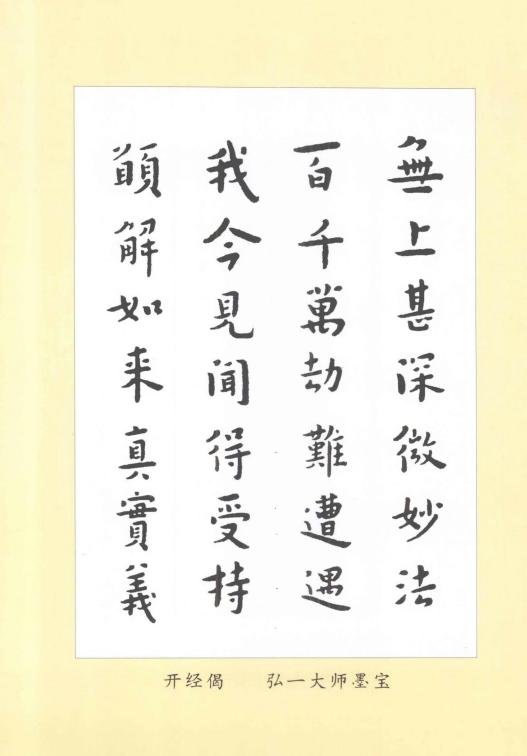 無上甚深微妙法
百千萬劫難遭遇
我今見聞得受持
願解如来真實義
开经偈 弘一大师墨宝